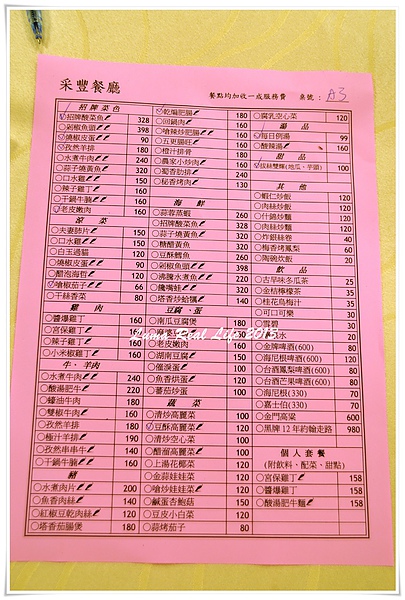 采豐餐廳
餐點均加收一成服務費 桌號：A3
招牌菜色
招牌酸菜魚 328
剁椒魚頭 398
燒椒皮蛋 90
孜然羊排
水煮牛肉 240
蒜子燒黃魚 330
口水雞 150
辣子雞丁 160
干鍋牛腩 160
老皮嫩肉 160
涼菜
夫妻肺片 150
口水雞 150
白玉過貓 120
燒椒皮蛋 90
醋泡海哲 120
嗆椒茄子 66
干絲香菜 80
雞肉
醬爆雞丁 160
宮保雞丁 160
辣子雞丁 160
小米椒雞丁 160
牛、羊肉
水煮牛肉 240
酸湯肥牛 220
蠔油牛肉
雙椒牛肉 160
孜然羊排 180
極汁羊排 190
孜然串串牛 140
干鍋牛腩 160
豬
水煮肉片 200
魚香肉絲 140
紅椒豆乾肉絲 120
塔香茄腸煲 180
乾煸肥腸 180
回鍋肉 160
嗆辣炒肥腸 180
五更腸旺 180
橙汁排骨 180
農家小炒肉 160
蜀香肋排 240
秘香烤肉 130
海鮮
蒜蓉蒸蝦 260
招牌酸菜魚
蒜子燒黃魚
糖醋黃魚
豆酥鱈魚
剁椒魚頭
沸騰水煮魚
饞嘴蛙
塔香炒蛤蠣
豆腐、蛋
南瓜豆腐煲 180
湖南豆腐
催淚蛋
魚香烘蛋 120
蕃茄炒蛋 100
蔬菜
清炒高麗菜 100
豆酥高麗菜 100
清炒空心菜 100
醋溜高麗菜 100
上湯花椰菜 120
金蒜娃娃菜 120
嗆炒娃娃菜 120
鹹蛋杏鮑菇 150
豆皮小白菜 120
蒜烤茄子 80
腐乳空心菜 120
湯品
每日例湯 99
酸辣湯 160
甜品
拔絲雙輝(地瓜、芋頭) 100
其他
蝦仁炒飯
肉絲炒飯
什錦炒麵
肉絲炒麵
炸銀絲卷 40
梅香烤鳳梨 60
陶碗炊飯 20
飲品
古早味冬瓜茶 25
金桔檸檬茶 35
桂花烏梅汁 35
可口可樂 30
雪碧 30
金牌啤酒(600) 80
海尼根啤酒(600)
台酒鳳梨啤酒(600) 80
台酒芒果啤酒(600) 80
海尼根(330) 70
嘉士伯(330) 70
金門高粱 600
黑牌12年約翰走路 980
個人套餐
(附飲料、配菜、甜點)
宮保雞丁 158
醬爆雞丁
酸湯肥牛麵 158
Luma Real Life 2015